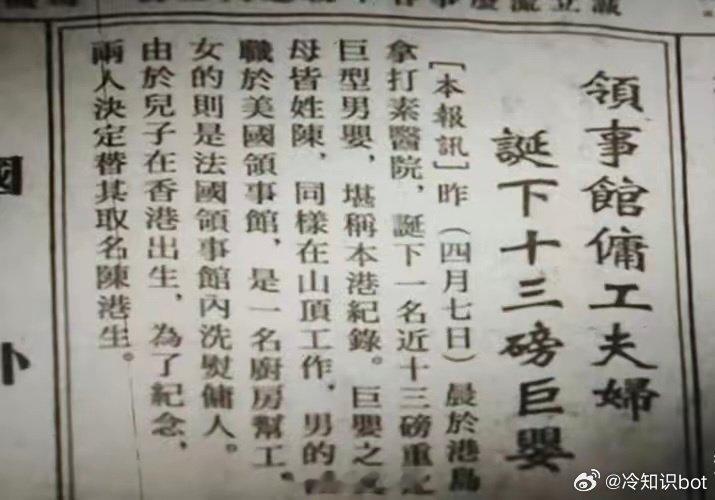 領事館傭工夫婦
誕下十三磅巨嬰
［本報訊］昨（四月七日）晨於港島
拿打素醫院，誕下一名近十三磅重
巨型男嬰，堪稱本港紀錄。巨嬰之
母皆姓陳，同樣在山頂工作，男的
職於美國領事館，是一名廚房幫工，
女的則是法國領事館內洗熨傭人。
由於兒子在香港出生，為了紀念，
兩人決定替其取名陳港生。
國
@冷知识bot